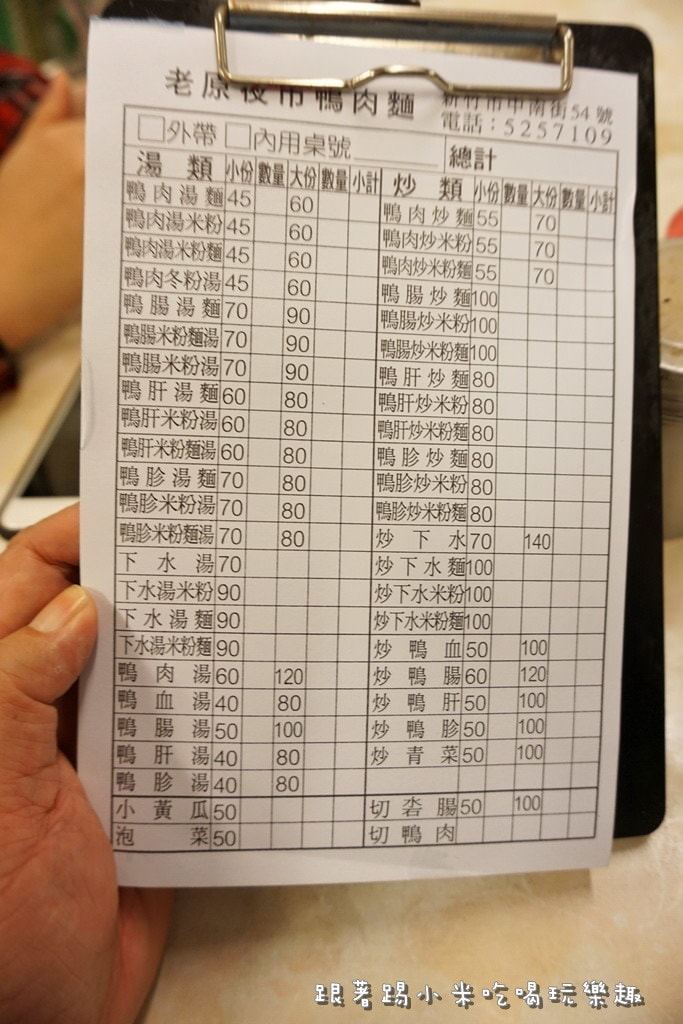 老原夜市鴨肉麵
新竹市中南街54號
電話：5257109
□外帶 □內用桌號 總計
湯類 小份 數量 大份 數量 小計 炒類 小份 數量 大份 數量 小計
鴨肉湯麵 45 60 鴨肉炒麵 55 70
鴨肉湯米粉 45 60 鴨肉炒米粉 55 70
鴨肉湯米粉麵 45 60 鴨肉炒米粉麵 55 70
鴨肉冬粉湯 45 60 鴨腸炒麵 100
鴨腸湯麵 70 90 鴨腸炒米粉 100
鴨腸米粉麵湯 70 90 鴨腸炒米粉麵 100
鴨腸米粉湯 70 90 鴨肝炒麵 80
鴨肝湯麵 60 80 鴨肝炒米粉 80
鴨肝米粉湯 60 80 鴨肝炒米粉麵 80
鴨肝米粉麵湯 60 80 鴨胗炒麵 80
鴨胗湯麵 70 80 鴨胗炒米粉 80
鴨胗米粉湯 70 80 鴨胗炒米粉麵 80
鴨胗米粉麵湯 70 80 炒下水 70 140
下水湯 70 炒下水麵 100
下水湯米粉 90 炒下水米粉 100
下水湯麵 90 炒下水米粉麵 100
下水湯米粉麵 90 炒鴨血 50 100
鴨肉湯 60 120 炒鴨腸 60 120
鴨血湯 40 80 炒鴨肝 50 100
鴨腸湯 50 100 炒鴨胗 50 100
鴨肝湯 40 80 炒青菜 50 100
鴨胗湯 40 80
小黃瓜 50 切喾腸 50 100
泡菜 50 切鴨肉
跟著踢小米吃喝玩樂趣